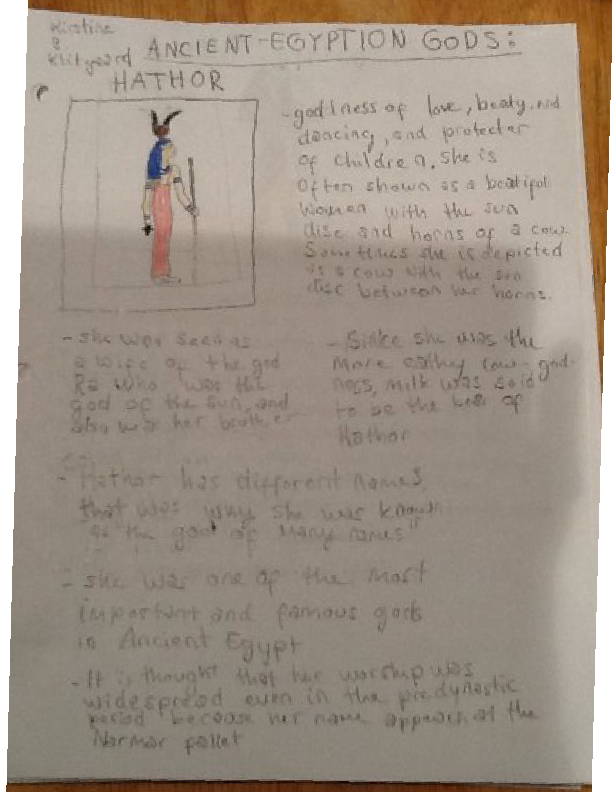 Kirstine
&
Klitgaard
ANCIENT-EGYPTION GODS:
HATHOR
-godlness of love, beaty, and
dancing, and protecter
of children, she is
often shown as a beatifol
women with the sun
disc and horns of a cow.
Sometimes she is depicted
as a cow with the sun
disc between her horns.
- she was seen as
a wife of the god
Ra who was the
god of the sun, and
also was her brother
- Sinke she was the
more eathey cow-god-
ness, milk was said
to be the beer of
Hathor
- Hathor has different names,
that was why she was known
as "the god of many names"
- she was one of the most
important and famous gods
in Ancient Egypt
- It is thought that her worship was
widespread even in the predynastic
period because her name appears at the
Narmar pallet